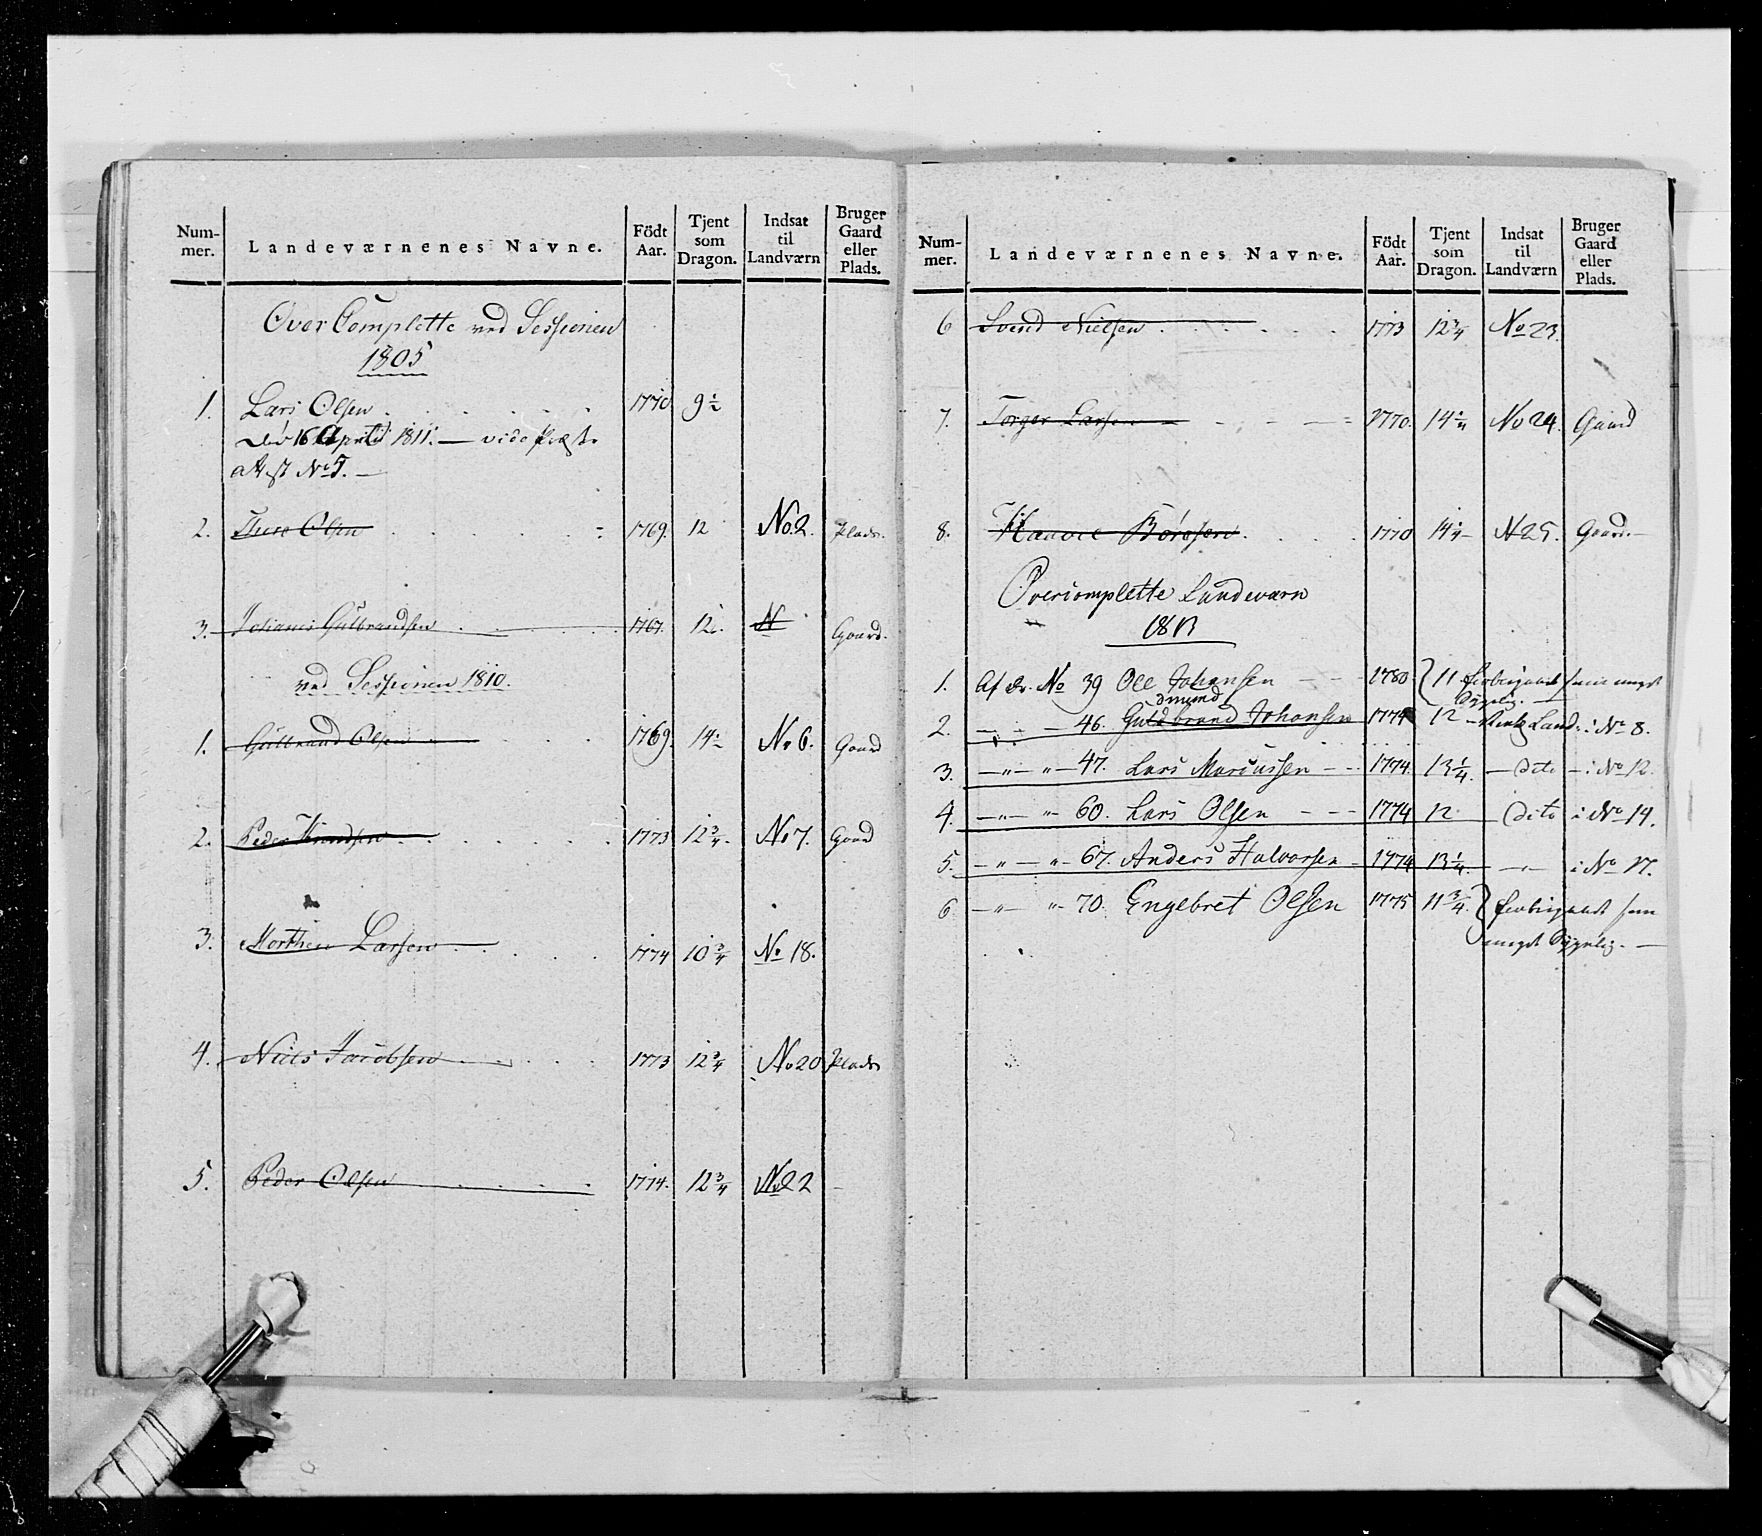 Num-
mer.
Landeværnenes Navne.
Födt
Aar.
Tjent
som
Dragon.
Indsat
til
Landværn
Bruger
Gaard
eller
Plads.
Over Complette ved Sessionen
1805
1. Lars Olsen 1770 9½
Död 16 April 1811. — vide Præste
attest No 5. —
2. Olsen 1769. 12 No 2. Plads.
3. Johannes Gulbrandsen 1767. 12 N Gaard.
ved Sessionen 1810.
1. Gulbrand Olsen 1769. 14 No 6. Gaard
2. Peder Knudsen 1773 12¾. No 7. Gaard
3. Morthen Larsen 1774 10¾ No 18.
4. Niels Jacobsen 1773 12¾ No 20 Plads
5. Peder Olsen 1774. 12¾ No 22
Num-
mer.
Landeværnenes Navne.
Födt
Aar.
Tjent
som
Dragon.
Indsat
til
Landværn
Bruger
Gaard
eller
Plads.
6 Svend Nielsen 1773 12¾ No 23.
7. Torger Larsen 1770. 14¼ No 24. Gaard
8. Børesen 1770 14¼ N 25. Gaard.
Overcomplette Landeværn
1813
1. Af No 39 Ole Johansen 1780 11 meget
dmund Sygelig.
2. — " — 46. Guldbrand Johansen 1774 12 Land: i No 8.
3. — " — " 47. Lars Marcussen 1774 13¼. — dito — i No 12.
4. — " — " 60. Lars Olsen 1774 12 dito i No 14.
5. — " — " 67. Anders Halvorsen 1774 13¼. — " — i No 17.
6 — " — " 70. Engebret Olsen 1775 11¾. som
meget Sygelig. —